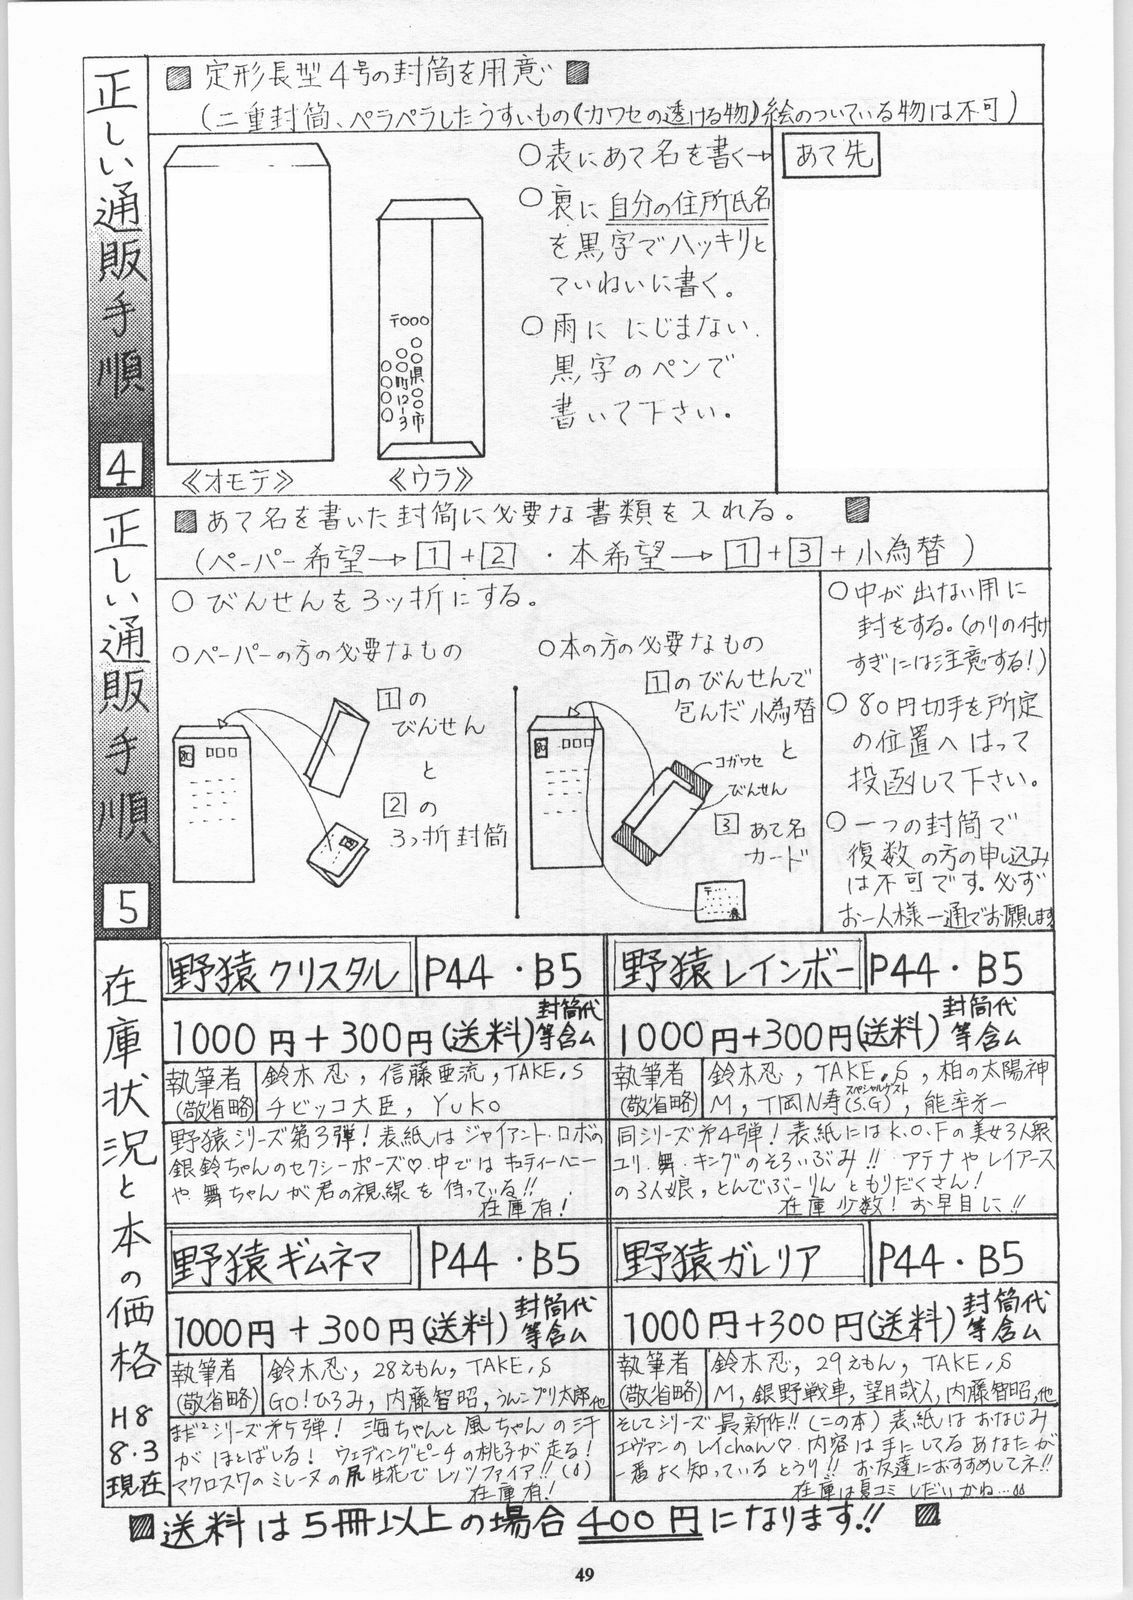 正しい通販手順 4
定形長型4号の封筒を用意
(二重封筒、ペラペラしたうすいもの《カワセの透ける物》絵のついている物は不可)
〒000
○○県○○市
○○町12-3
○○○○
《オモテ》
《ウラ》
○表にあて名を書く→
○裏に自分の住所氏名
を黒字でハッキリと
ていねいに書く。
○雨ににじまない
黒字のペンで
書いて下さい。
あて先
正しい通販手順 5
あて名を書いた封筒に必要な書類を入れる。
(ペーパー希望→1+2・本希望→1+3+小為替)
○びんせんを3ッ折にする。
○ペーパーの方の必要なもの
80
1の
びんせん
と
2の
3っ折封筒
○本の方の必要なもの
1のびんせんで
包んだ小為替
と
80
コガワセ
びんせん
3あて名
カード
〒
○中が出ない用に
封をする。(のりの付け
すぎには注意する!)
○80円切手を所定
の位置へはって
投函して下さい。
○一つの封筒で
復数の方の申し込み
は不可です。必ず
お一人様一通でお願します
在庫状況と本の価格
H8
8.3
現在
野猿クリスタル P44・B5
1000円+300円(送料)封筒代等含ム
執筆者(敬省略)
鈴木忍,信藤亜流,TAKE.S
チビッコ大臣,YUKO
野猿シリーズ第3弾!表紙はジャイアント・ロボの
銀鈴ちゃんのセクシーポーズ♡中ではキューティーハニー
や舞ちゃんが君の視線を待っている!!
在庫有!
野猿レインボー P44・B5
1000円+300円(送料)封筒代等含ム
執筆者(敬省略)
鈴木忍,TAKE.S,柏の太陽神
M,T岡N寿スペシャルゲスト(S.G),能率才一
同シリーズ才4弾!表紙にはK.O.Fの美女3人衆
ユリ・舞・キングのそろいぶみ!!アテナやレイアース
の3人娘,とんでぶーりんともりだくさん!
在庫少数!お早目に!!
野猿ギムネマ P44・B5
1000円+300円(送料)封筒代等含ム
執筆者(敬省略)
鈴木忍,28えもん,TAKE.S
GO!ひろみ,内藤智昭,うんこプリ太郎,他
まだ²シリーズ才5弾!海ちゃんと風ちゃんの汗
がほとばしる!ウェディングピーチの桃子が走る!
マクロス7のミレーヌの尻生花でレッツファイア!!(δ)
在庫有!
野猿ガレリア P44・B5
1000円+300円(送料)封筒代等含ム
執筆者(敬省略)
鈴木忍,29えもん,TAKE.S
M,銀野戦車,望月哉人,内藤智昭,他
そしてシリーズ最新作!!(この本)表紙はおなじみ
エヴァンのレイchan♡.内容は手にしてるあなたが
一番よく知っているとうり!!お友達におすすめしてネ!!
在庫は夏コミしだいかね…δδ
送料は5冊以上の場合400円になります!!
49